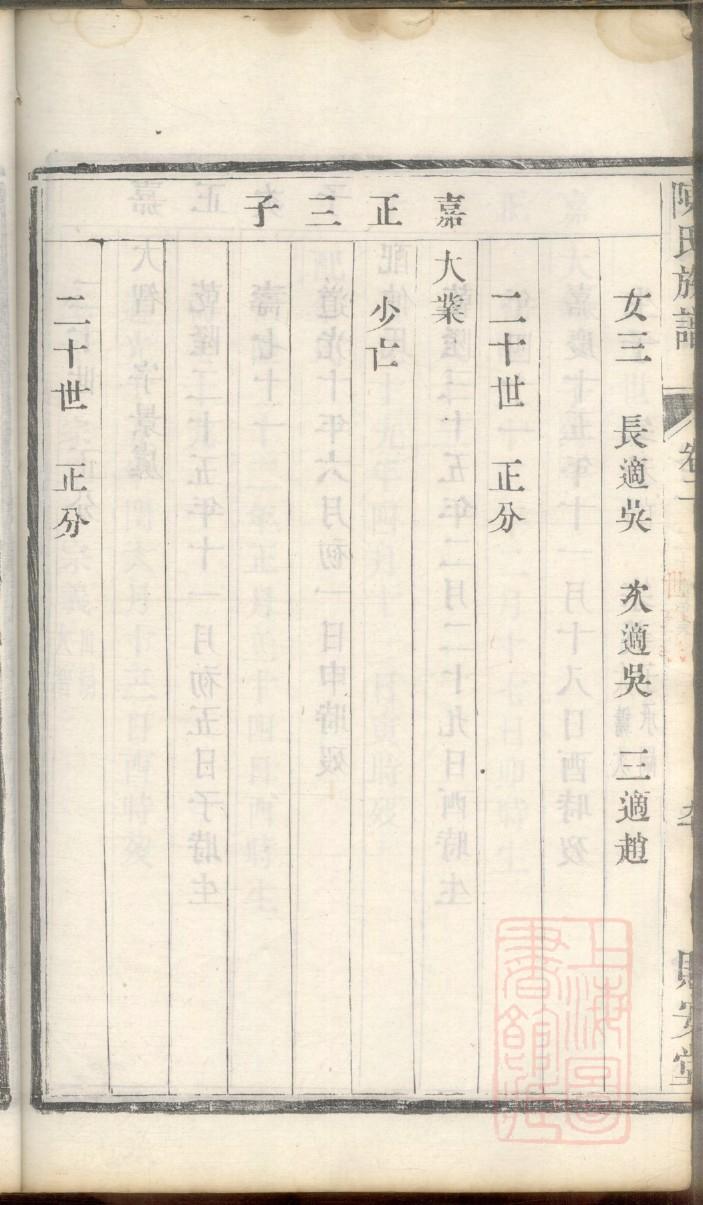 氏族譜
卷二
安堂
女三　長適吳　次適吳　三適趙
二十世　正分
嘉正三子
大業
少亡
二十世　正分
上海圖書館藏